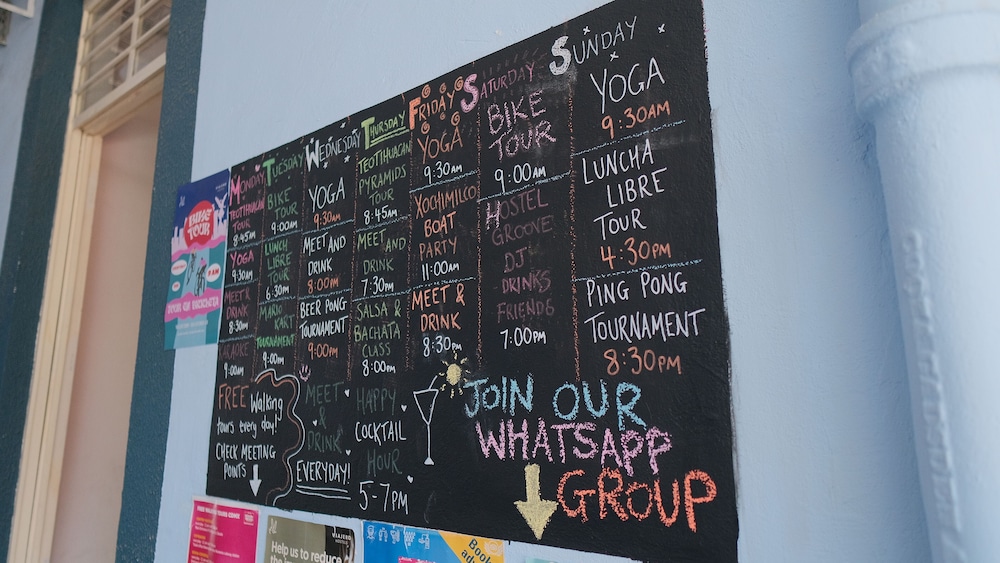 MONDAY
TEOTIHUACAN
TOUR
8:45AM
YOGA
9:30AM
MEET &
DRINK
8:30PM
KARAOKE
9:00PM
TUESDAY
BIKE
TOUR
9:00AM
LUNCH
LIBRE
TOUR
6:30PM
MARIO
KART
TOURNAMENT
9:00PM
WEDNESDAY
YOGA
9:30AM
MEET AND
DRINK
8:00PM
BEER PONG
TOURNAMENT
9:00PM
THURSDAY
TEOTIHUACAN
PYRAMIDS
TOUR
8:45AM
MEET AND
DRINK
7:30PM
SALSA &
BACHATA
CLASS
8:00PM
FRIDAY
YOGA
9:30AM
XOCHIMILCO
BOAT
PARTY
11:00AM
MEET &
DRINK
8:30PM
SATURDAY
BIKE
TOUR
9:00AM
HOSTEL
GROOVE
DJ
DRINKS
FRIENDS
7:00PM
SUNDAY
YOGA
9:30AM
LUNCHA
LIBRE
TOUR
4:30PM
PING PONG
TOURNAMENT
8:30PM
FREE Walking
tours every day!
CHECK MEETING
POINTS
MEET
&
DRINK
EVERYDAY!
HAPPY
COCKTAIL
HOUR
5-7PM
JOIN OUR
WHATSAPP
GROUP
BIKE
TOUR
VIAJERO
Help us to reduce
Book